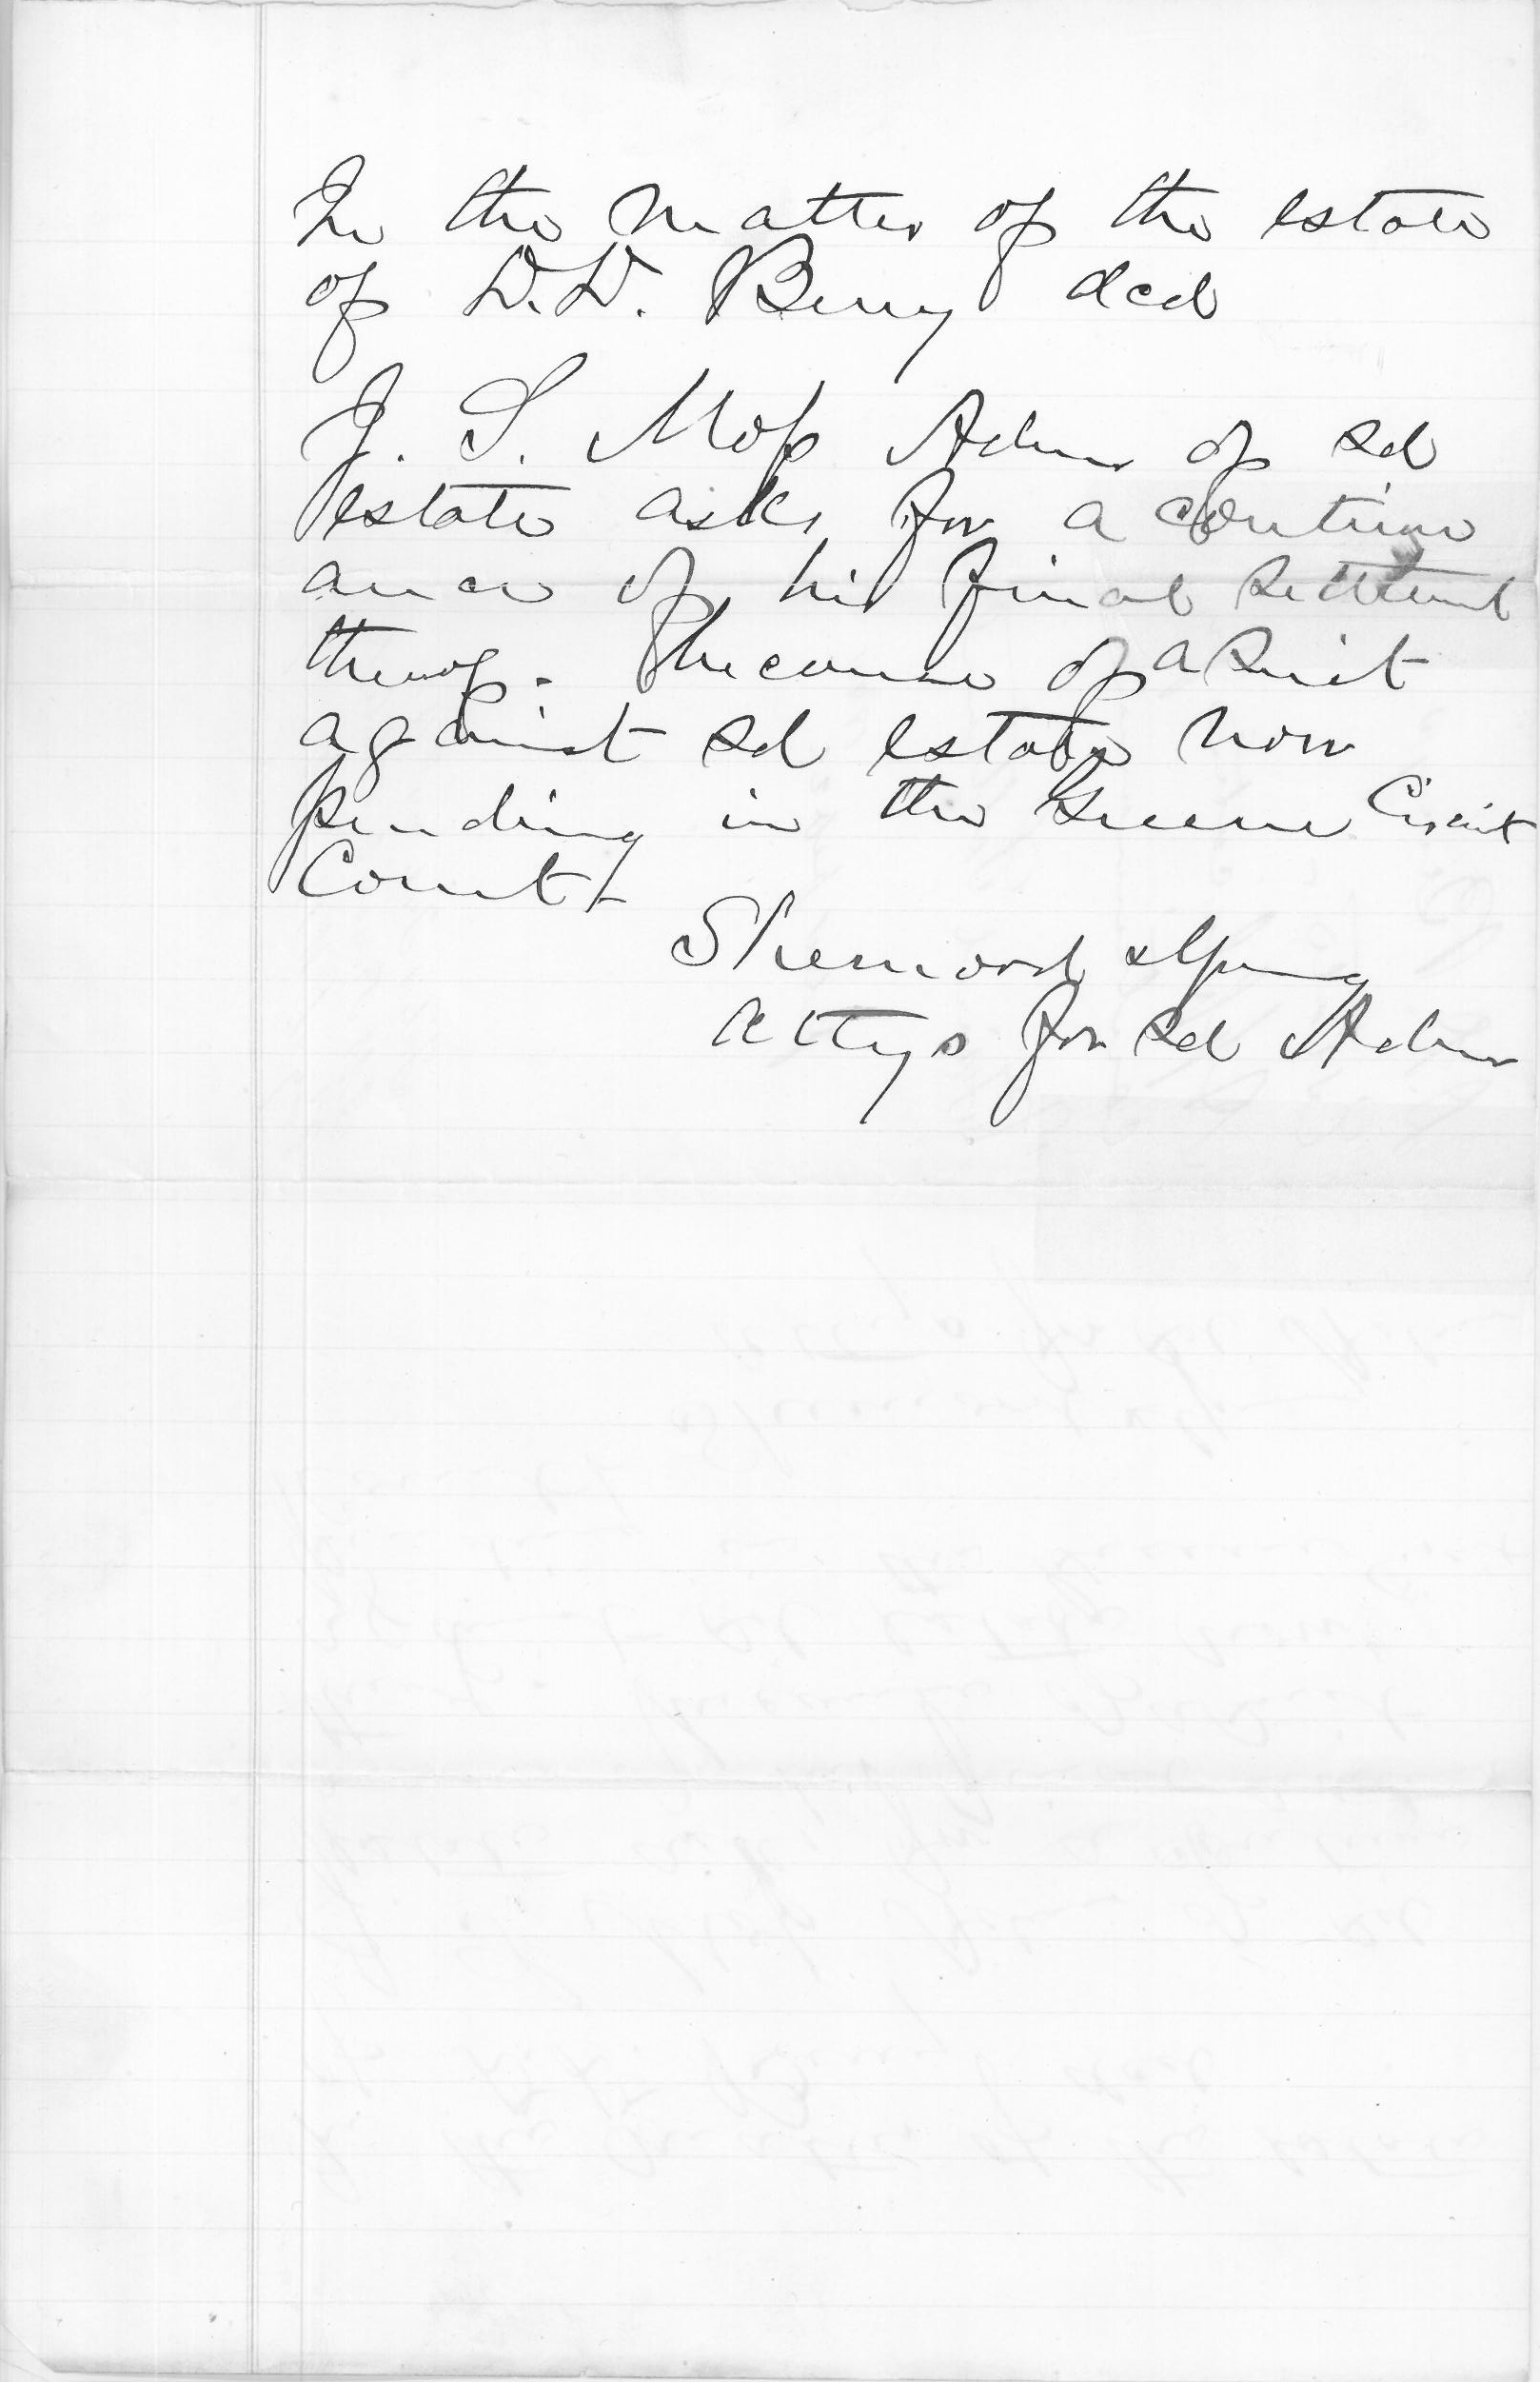 In the matter of the estate
of D.D. Berry decd
J. S. Moss Admr of sd
estate asks for a continu
ance of his final settlemt
thereof. Because of a Suit
against sd estate now
pending in the Greene Circuit
Court
Sherwood & Young
Attys for sd Admr